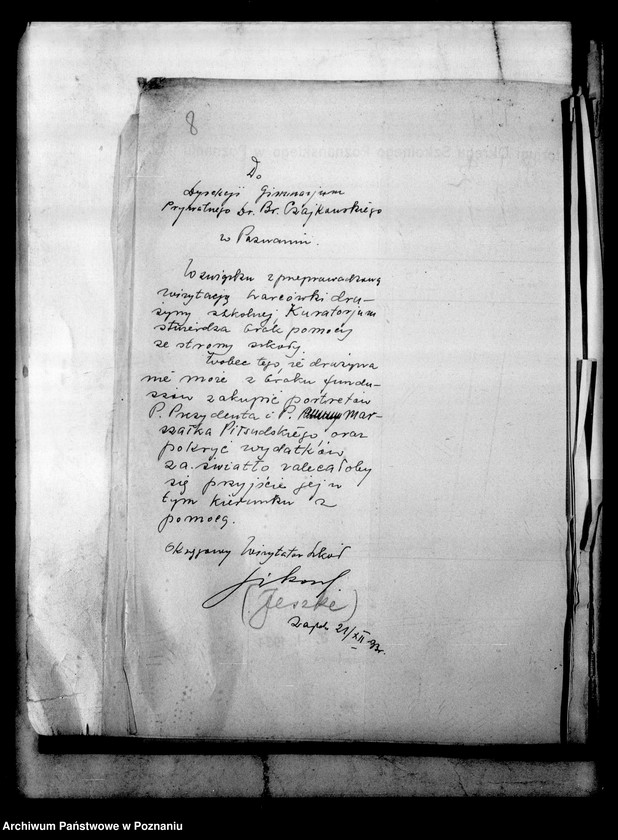 8
Do
Dyrekcji Gimnazjum
Prywatnego Dr. Br. Czajkowskiego
w Poznaniu.
W związku z przeprowadzoną
wizytacją harcówki dru-
żyny szkolnej, Kuratorjum
stwierdza brak pomocy
ze strony szkoły.
Wobec tego, że drużyna
nie może z braku fundu-
szów zakupić portretów
P. Prezydenta i P. Mar-
szałka Piłsudskiego oraz
pokryć wydatków
za światło zalecałoby
się przyjście jej w
tym kierunku z
pomocą.
Okręgowy Wizytator Szkół
(Jeszke)
21/XII
Archiwum Państwowe w Poznaniu